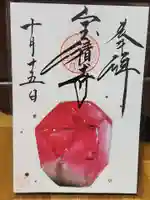 奉拝
宝積寺
十月十五日